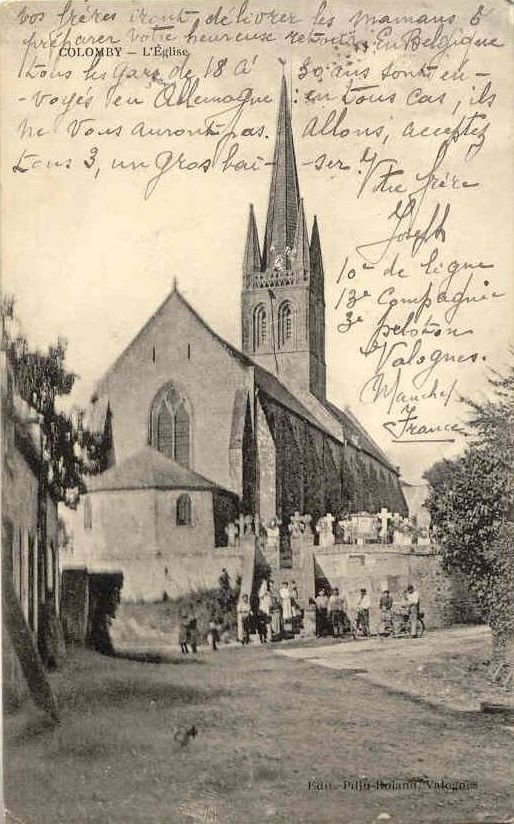 vos frères iront délivrer les mamans &
préparer votre heureuse retour. En Belgique
COLOMBY — L'Église
tous les gars de 18 à 30 ans sont en-
-voyés en Allemagne : en tous cas, ils
ne vous auront pas. Allons, acceptez
tous 3, un gros bai-ser.
Votre frère
Joseph
10e de ligne
13e Compagnie
3e peloton
Valognes.
Manche
France
Edit. Valognes